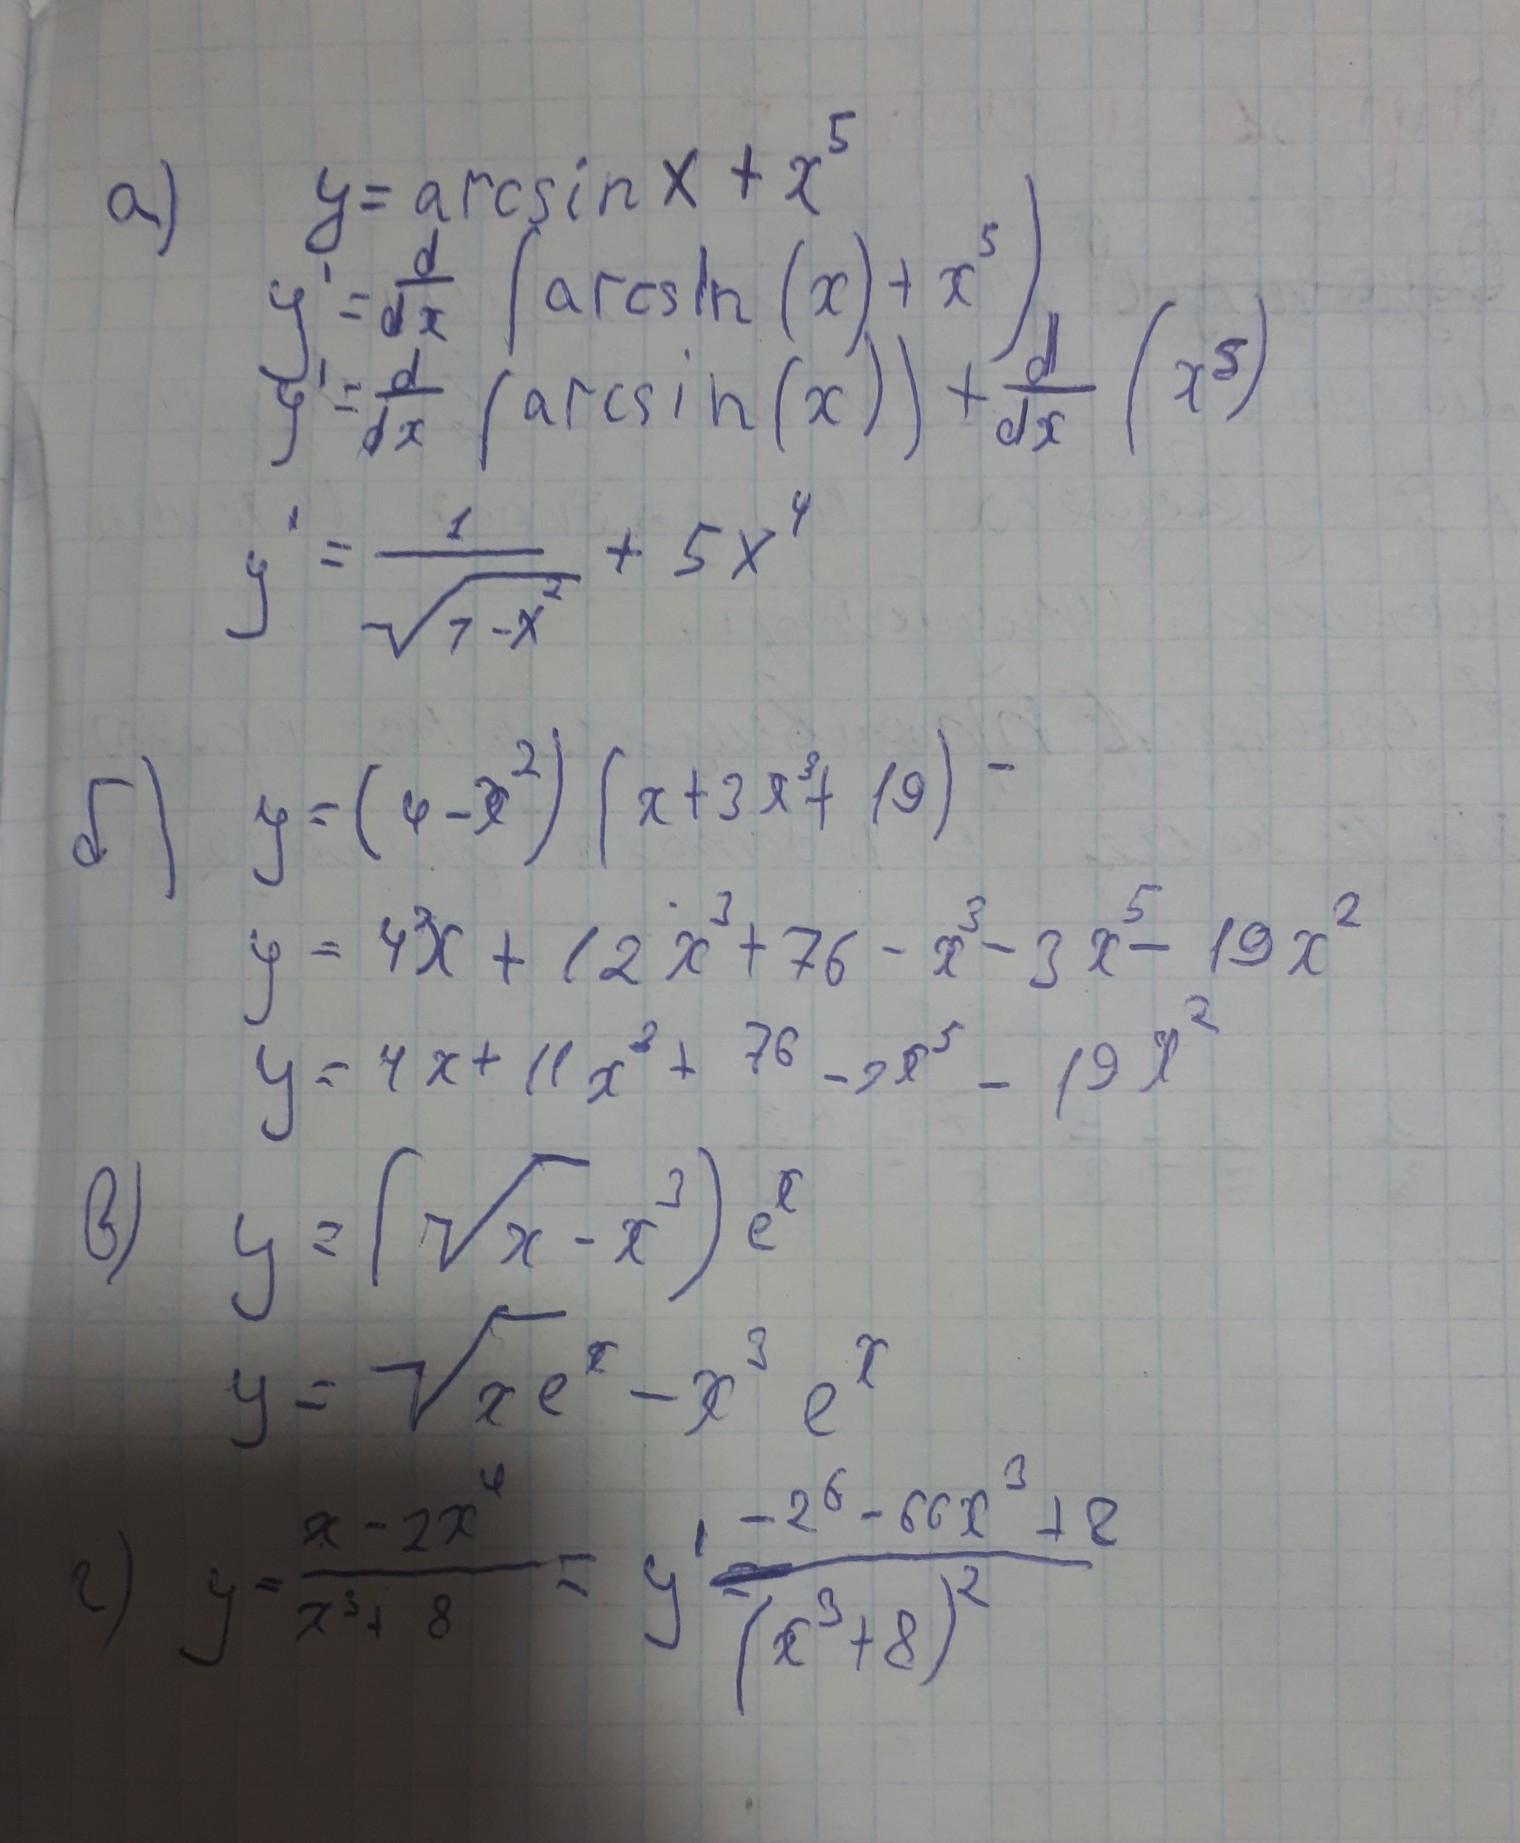 а) y = arcsin x + x⁵
y' = d/dx (arcsin(x) + x⁵)
y' = d/dx (arcsin(x)) + d/dx (x⁵)
y' = 1/√(1-x²) + 5x⁴
б) y = (4-x²)(x+3x³+19) -
y = 4x + 12x³ + 76 - x³ - 3x⁵ - 19x²
y = 4x + 11x³ + 76 - 3x⁵ - 19x²
в) y = (√x - x³)eˣ
y = √x eˣ - x³ eˣ
г) y = (x - 2x⁴)/(x³ + 8) = y' = (-2⁶ - 66x³ + 8)/(x³+8)²